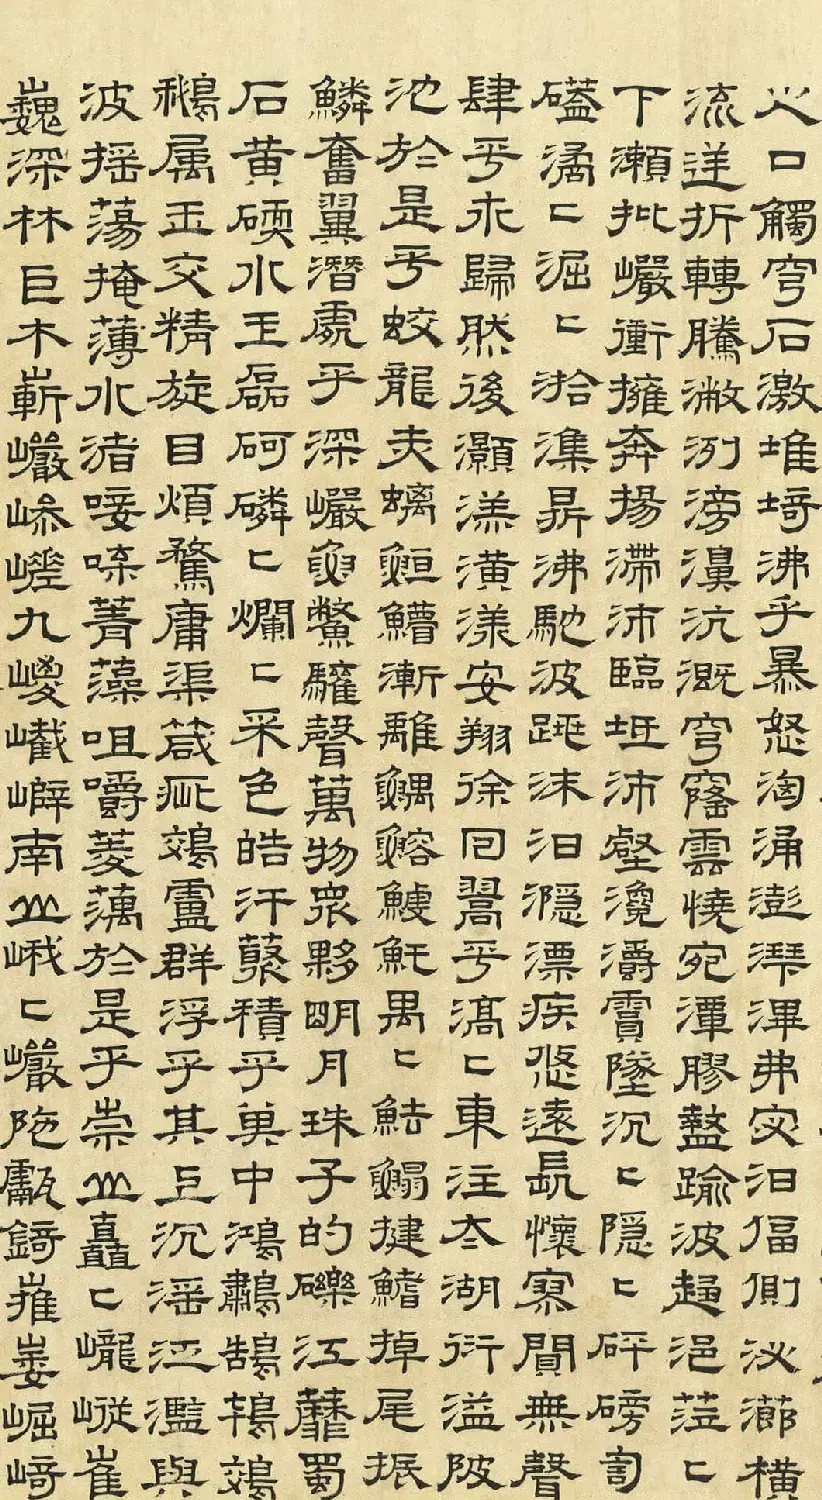 之口觸穹石激堆埼沸乎暴怒洶涌澎湃滭弗宓汨偪側泌瀄橫
流逆折轉騰潎洌滂濞沆溉穹窿雲橈宛潬膠盭踰波趨浥蒞〻
下瀨批巖衝擁奔揚滯沛臨坻沛壑瀺灂霣墜沉〻隱〻砰磅訇
礚潏〻淈〻湁潗鼎沸馳波跳沫汨濦漂疾悠遠長懷寂無聲
肆乎永歸然後灝溔潢漾安翔徐回翯乎滈〻東注太湖衍溢陂
池於是乎蛟龍赤螭䱍䲛漸離鰅鰫鰬魠禺〻魼鰨揵鰭掉尾振
鱗奮翼潛處乎深巖魚鱉讙聲萬物眾夥明月珠子的礫江靡蜀
石黃碝水玉磊砢磷〻爛〻采色皓汗藂積乎其中鴻鷫鵠鴇鴐
鵝屬玉交精旋目煩鶩庸渠箴疵鵁盧群浮乎其上沉淫泛濫與
波搖蕩掩薄水渚唼喋菁藻咀嚼菱藕於是乎崇山矗〻巃嵸崔
巍深林巨木嶄巖嵾嵳九嵏巀嶭南山峨〻巖陁甗錡嶊崣崛崎